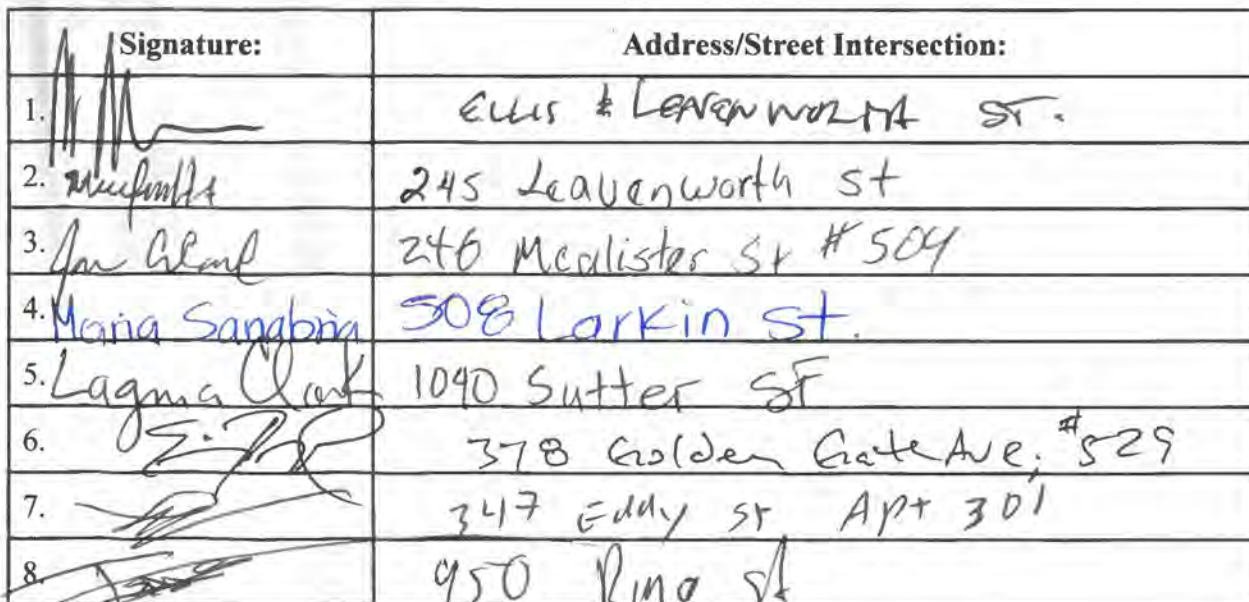 Signature: Address/Street Intersection:
1. ELLIS & LEAVENWORTH ST.
2. 245 Leavenworth St
3. 246 Mcalister St #504
4. Maria Sanabria 508 Larkin St.
5. Lagma Clark 1040 Sutter ST
6. 378 Golden Gate Ave, #529
7. 347 Eddy St Apt 301
8. 950 St